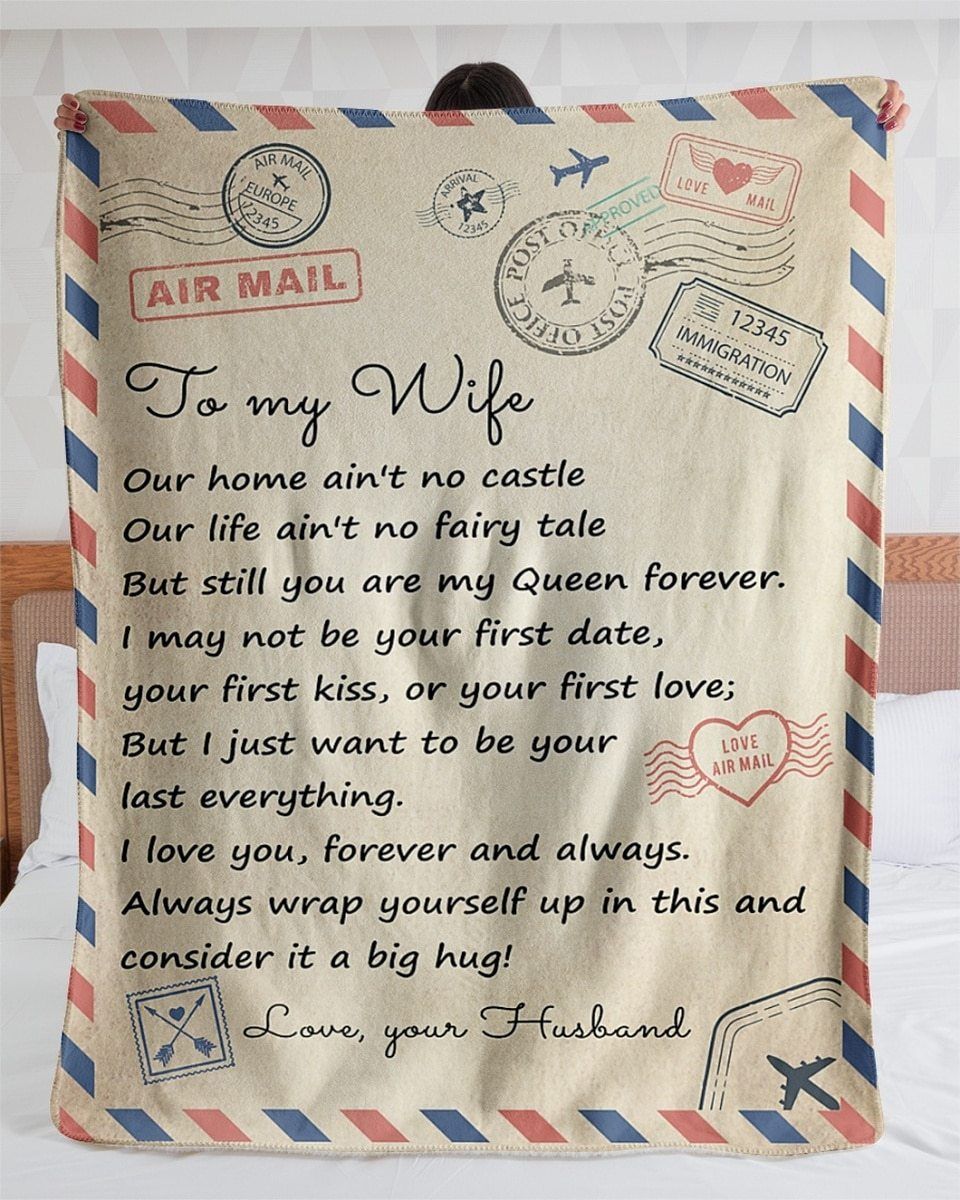 AIR MAIL
EUROPE
12345
ARRIVAL
12345
POST OFFICE
POST OFFICE
LOVE MAIL
AIR MAIL
12345
IMMIGRATION
To my Wife
Our home ain't no castle
Our life ain't no fairy tale
But still you are my Queen forever.
I may not be your first date,
your first kiss, or your first love;
But I just want to be your
last everything.
LOVE
AIR MAIL
I love you, forever and always.
Always wrap yourself up in this and
consider it a big hug!
Love, your Husband